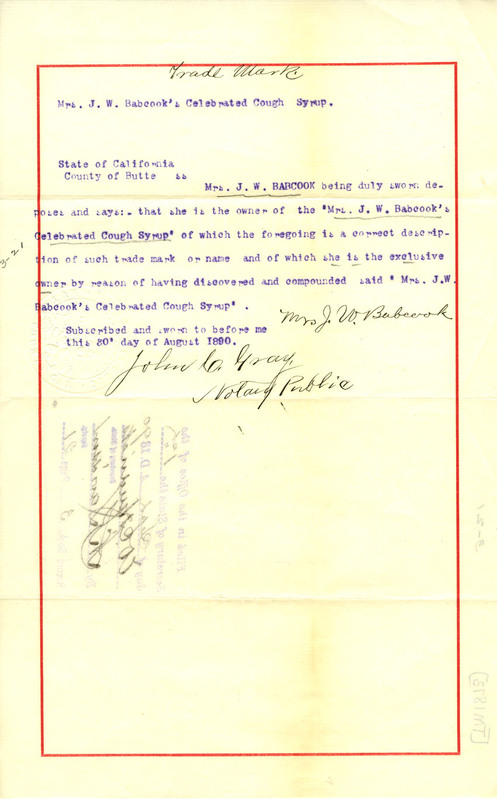 Trade Mark.
Mrs. J. W. Babcook's Celebrated Cough Syrup.
State of California
County of Butte ss
Mrs. J. W. BABCOOK being duly sworn de-
poses and says:- that she is the owner of the "Mrs. J. W. Babcook's
Celebrated Cough Syrup" of which the foregoing is a correct descrip-
tion of such trade mark or name and of which she is the exclusive
3-21
owner by reason of having discovered and compounded said " Mrs. J.W.
Babcook's Celebrated Cough Syrup" .
Mrs J. W. Babcook
Subscribed and sworn to before me
this 30" day of August 1890.
John C. Gray,
Notary Public
Filed in the Office of the
Secretary of State the
day of
A.D. 18
By
Deputy
3-21
TM1875